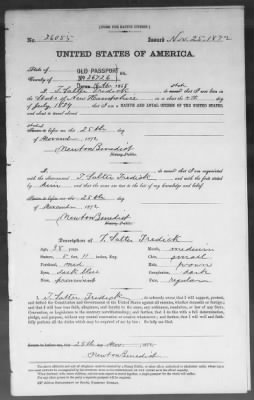 [FORM FOR NATIVE CITIZEN.]
No. 26055 Issued Nov. 25. 1872
UNITED STATES OF AMERICA.
State of
County of
OLD PASSPORT
No 26726
I, T. Salter Tredick do swear that I was born in
the State of New Hampshire on or about the day
of July 1834 that I am a NATIVE AND LOYAL CITIZEN OF THE UNITED STATES,
and about to travel abroad
Sworn to before me this 25th day
of November 1872
Newton Benedict
Notary Public.
I, that I am acquainted
with the above named T. Salter Tredick and with the facts stated
by him and that the same are true to the best of my knowledge and belief
Sworn to before me this 25th day
of November 1872
Newton Benedict
Notary Public.
Description of T. Salter Tredick
Age: 38 years Mouth: medium
Stature: 5 feet 11 inches, Eng. Chin: small
Forehead: med Hair: brown
Eyes: dark blue Complexion: dark
Nose: prominent Face: regular
I, T. Salter Tredick do solemnly swear that I will support, protect,
and defend the Constitution and Government of the United States against all enemies, whether domestic or foreign;
and that I will bear true faith, allegiance, and loyalty to the same, any ordinance, resolution, or law of any State,
Convention, or Legislature to the contrary notwithstanding; and further, that I do this with a full determination,
pledge, and purpose, without any mental reservation or evasion whatsoever; and further, that I will well and faithfully
perform all the duties which may be required of me by law: So help me God.
Sworn to before me, this 25th day Nov. 1872
Newton Benedict